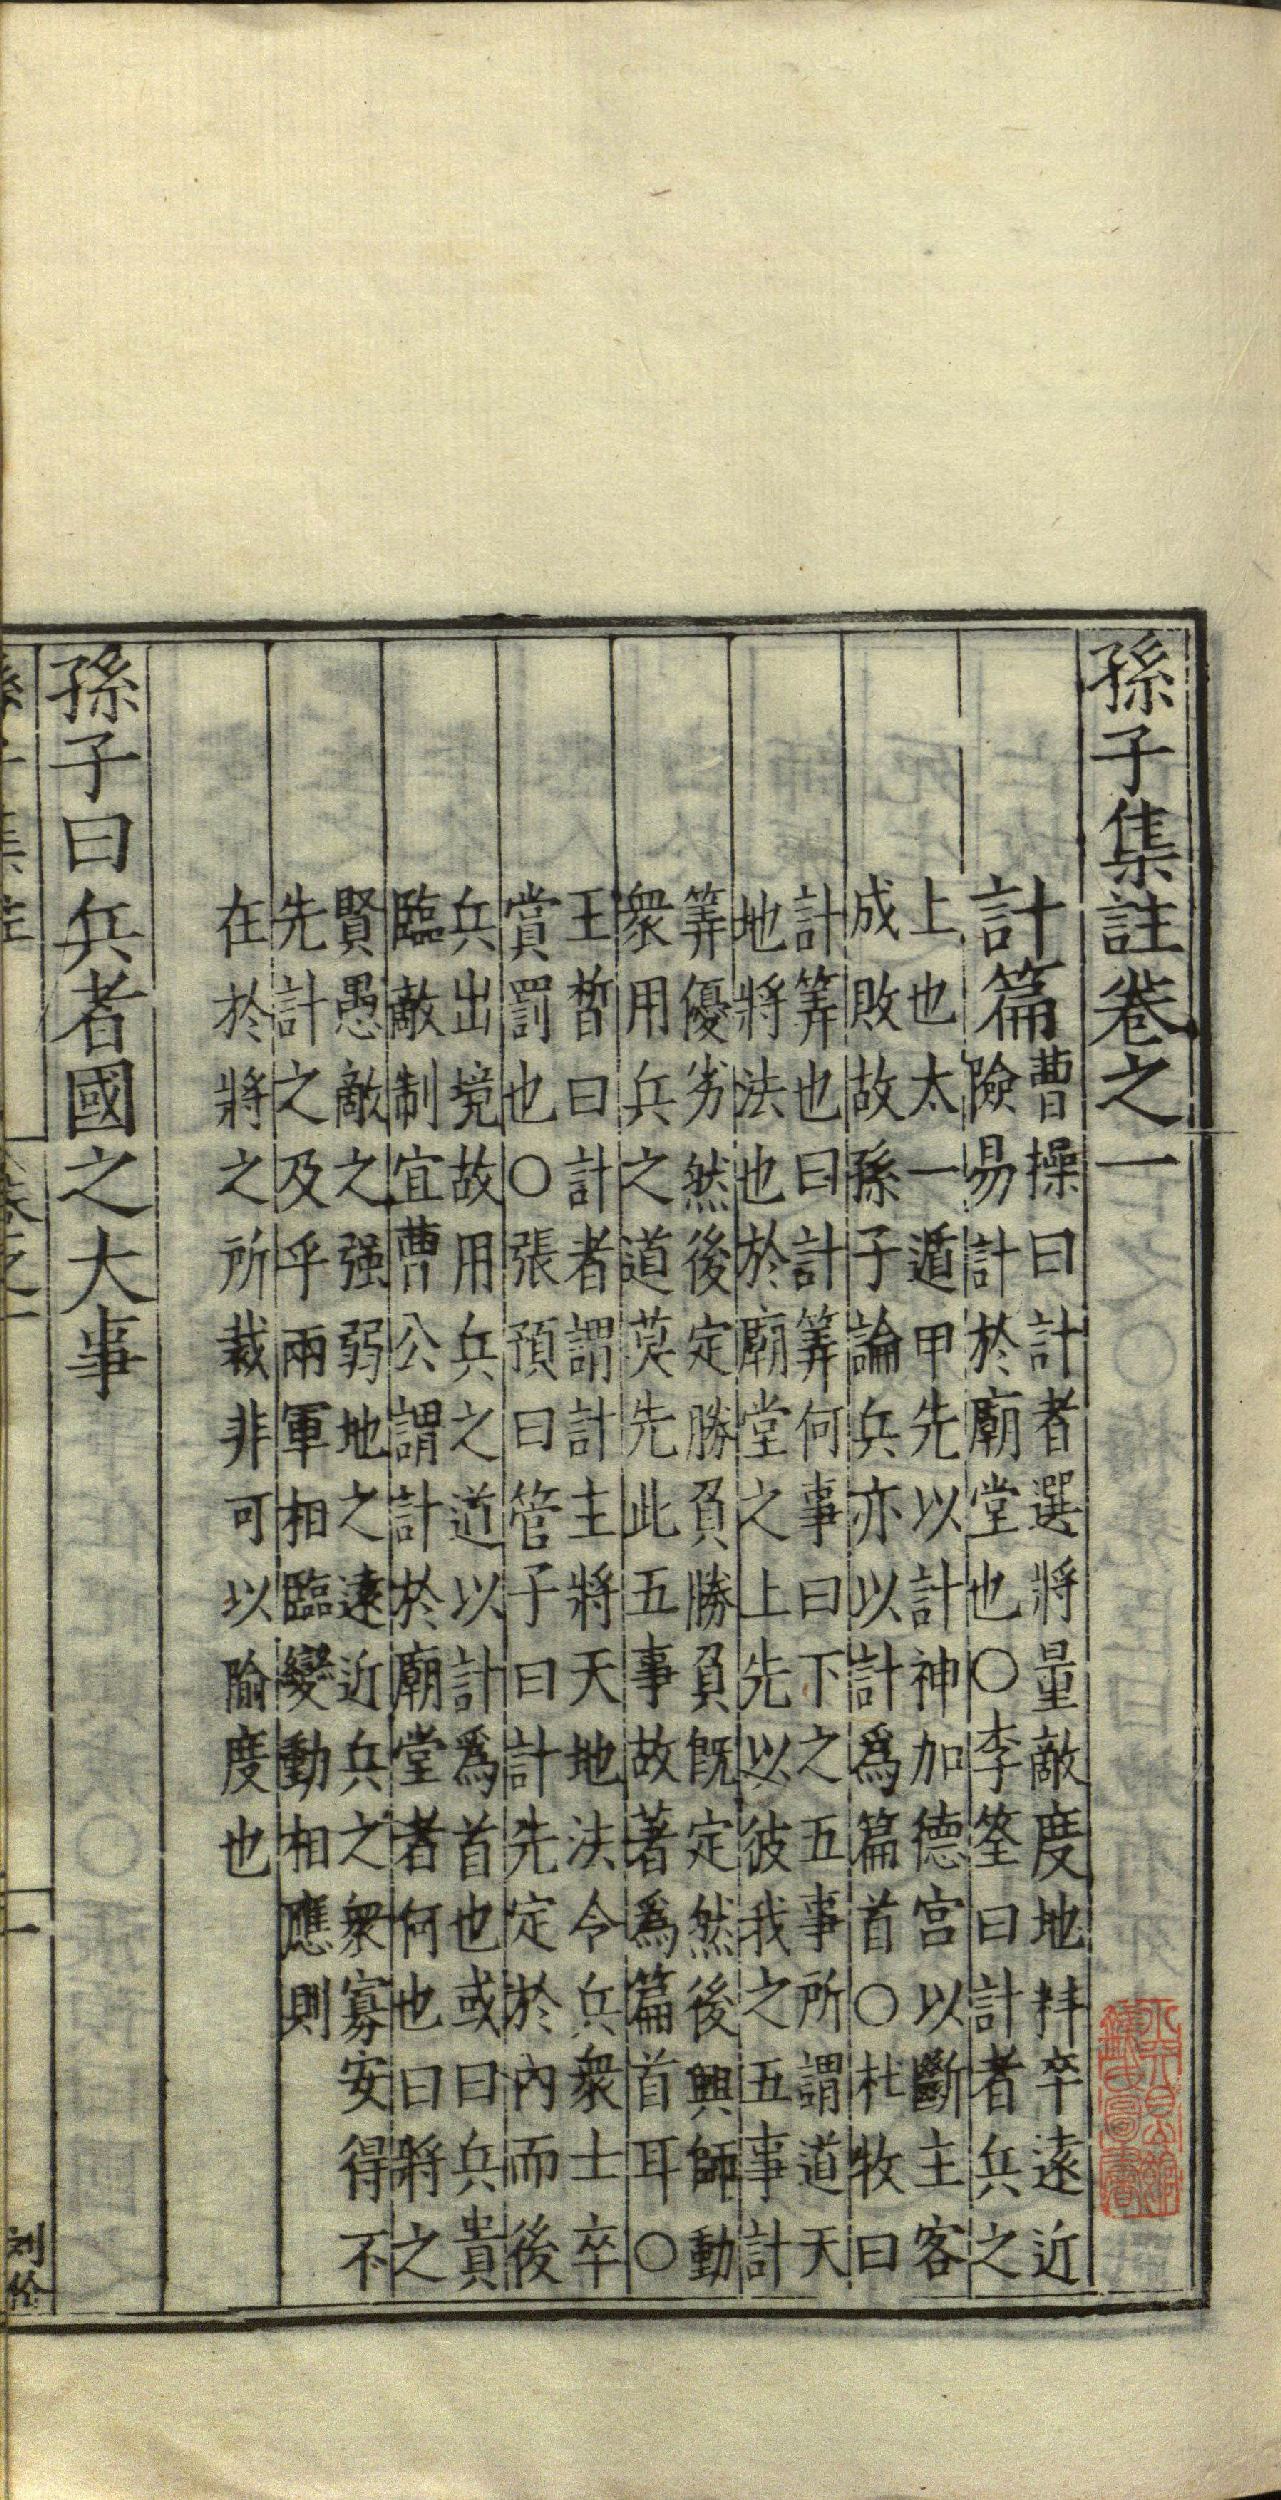 孫子集註卷之一
計篇
曹操曰計者選將量敵度地料卒遠近
險易計於廟堂也○李筌曰計者兵之
上也太一遁甲先以計神加德宮以斷主客
成敗故孫子論兵亦以計爲篇首○杜牧曰
計筭也曰計筭何事曰下之五事所謂道天
地將法也於廟堂之上先以彼我之五事計
筭優劣然後定勝負勝負既定然後興師動
衆用兵之道莫先此五事故著爲篇首耳○
王晳曰計者謂計主將天地法令兵衆士卒
賞罰也○張預曰管子曰計先定於內而後
兵出境故用兵之道以計爲首也或曰兵貴
臨敵制宜曹公謂計於廟堂者何也曰將之
賢愚敵之强弱地之遠近兵之衆寡安得不
先計之及乎兩軍相臨變動相應則
在於將之所裁非可以隃度也
孫子曰兵者國之大事